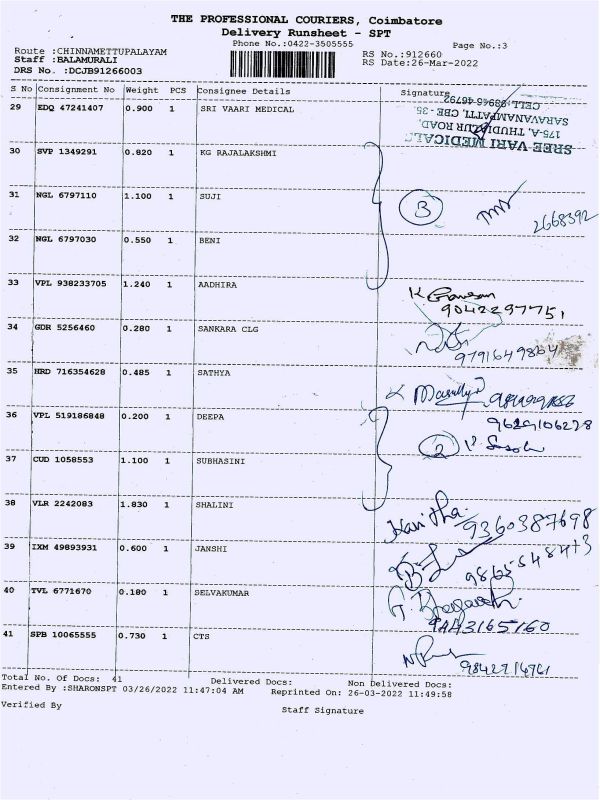 THE PROFESSIONAL COURIERS, Coimbatore
Delivery Runsheet - SPT
Phone No.:0422-3505555 Page No.:3
Route :CHINNAMETTUPALAYAM RS No.:912660
Staff :BALAMURALI RS Date:26-Mar-2022
DRS No. :DCJB91266003
S No Consignment No Weight PCS Consignee Details Signature
29 EDQ 47241407 0.900 1 SRI VAARI MEDICAL
SREE VARI MEDICAL
175-A, THUDIALUR ROAD,
SARAVANAMPATTI, CBE - 35.
CELL: 98946-46792
30 SVP 1349291 0.820 1 KG RAJALAKSHMI
31 NGL 6797110 1.100 1 SUJI
3
2668392
32 NGL 6797030 0.550 1 BENI
33 VPL 938233705 1.240 1 AADHIRA
9042297751
34 GDR 5256460 0.280 1 SANKARA CLG
9791649864
35 HRD 716354628 0.485 1 SATHYA
36 VPL 519186848 0.200 1 DEEPA
9629106228
2
37 CUD 1058553 1.100 1 SUBHASINI
38 VLR 2242083 1.830 1 SHALINI
Haritha
9360387698
39 IXM 49893931 0.600 1 JANSHI
40 TVL 6771670 0.180 1 SELVAKUMAR
41 SPB 10065555 0.730 1 CTS
Total No. Of Docs: 41 Delivered Docs: Non Delivered Docs:
Entered By :SHARONSPT 03/26/2022 11:47:04 AM Reprinted On: 26-03-2022 11:49:58
Verified By
Staff Signature